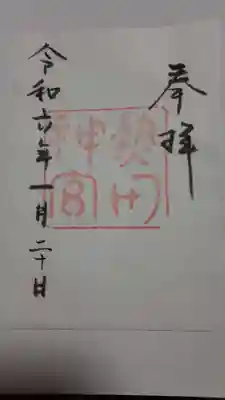 奉拝
令和六年一月二十日